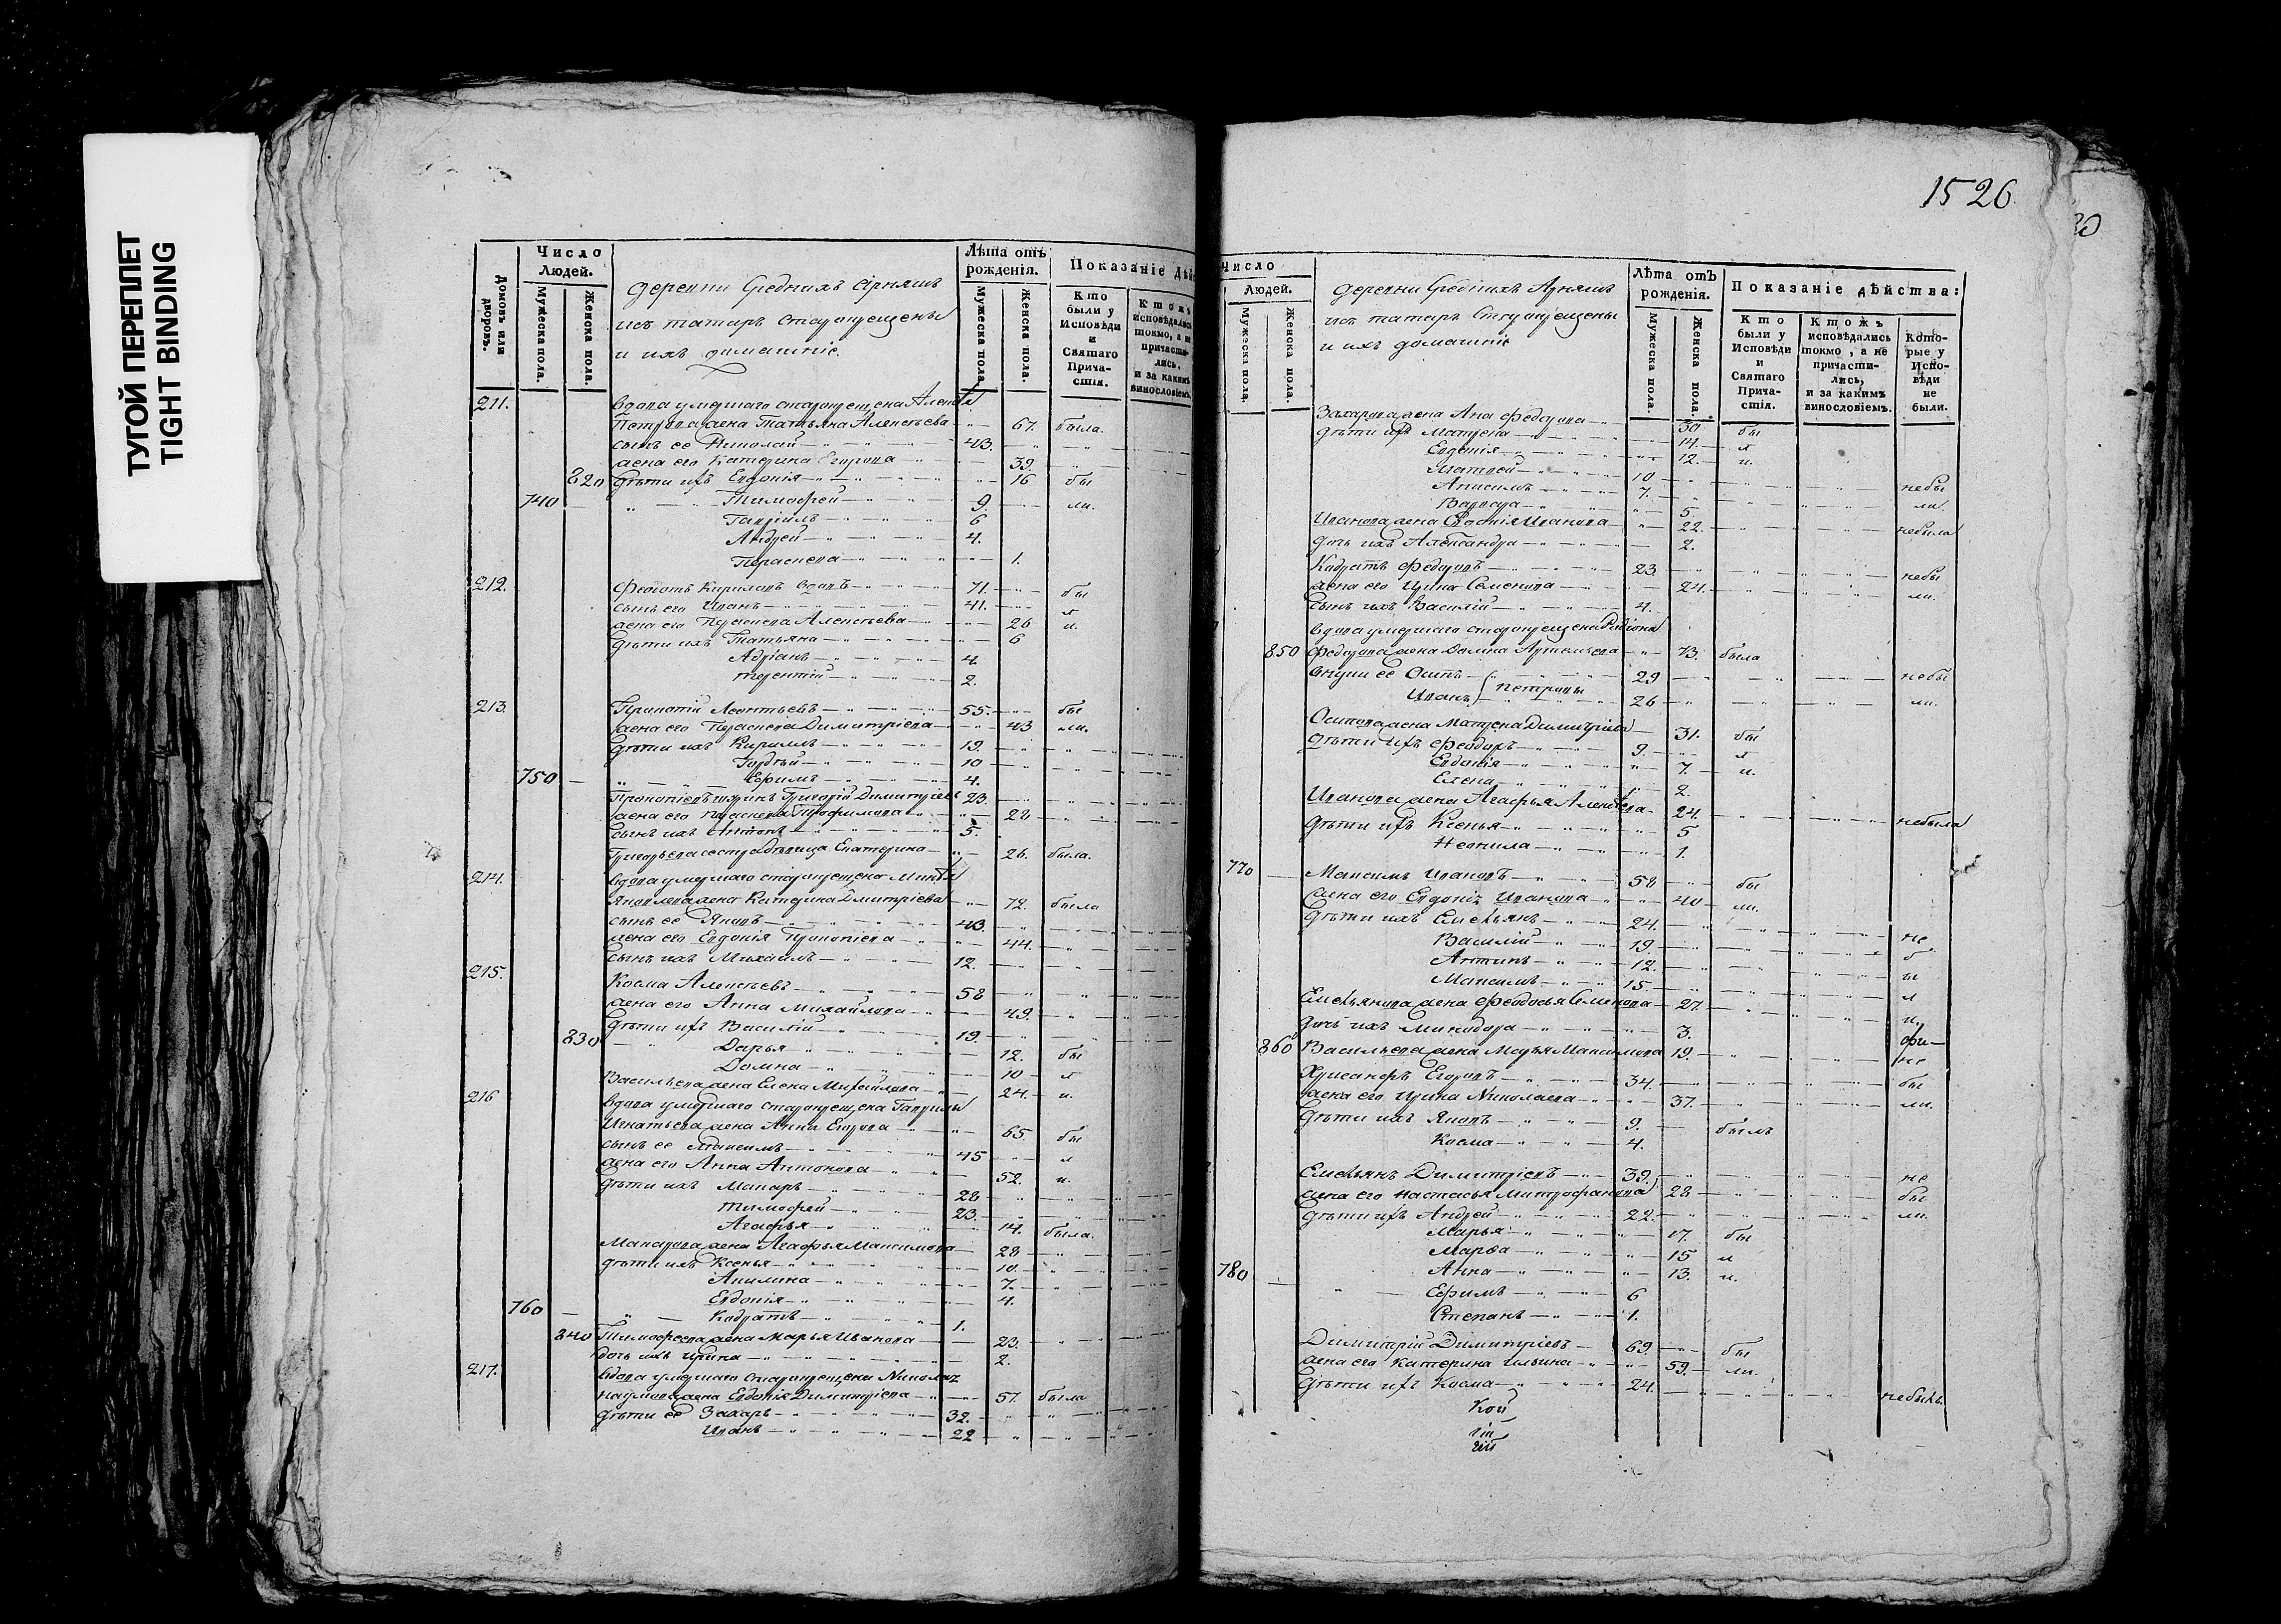 ТУГОЙ ПЕРЕПЛЕТ
TIGHT BINDING
Домовъ или дворовъ.
Число Людей.
Мужеска пола.
Женска пола.
деревни Среднихъ Арняшъ
изъ татаръ старокрещены
и ихъ домашніе.
Лѣта отъ рожденія.
Мужеска пола.
Женска пола.
Показаніе дѣй
Кто были у Исповѣди и Святаго Причастія.
Ктожъ исповѣдались токмо, а не причастились, и за какимъ винословіемъ.
211. вдова умершаго старокрещена Алексѣя
Петрова жена Татьяна Алексѣева 67. была.
сынъ ее Николай 43.
жена его Катерина Егорова 39.
820 дѣти ихъ Евдокія 16 бы
740 Тимофей 9. ли.
Гавріилъ 6
Андрей 4.
Параскева 1.
212. Феодотъ Кириловъ вдовъ 71. бы
сынъ его Иванъ 41. л
жена его Параскева Алексѣева 26 и.
дѣти ихъ Татьяна 6
Адріанъ 4.
Терентій 2.
213. Прокопій Леонтьевъ 55. бы
жена его Параскева Димитріева 43 ли.
дѣти ихъ Кирилъ 19.
Гордѣй 10
750 Ефимъ 4.
Прокопіевъ Григорій Димитріевъ 23.
жена его Параскева Трофимова 28
сынъ ихъ Антонъ 5.
Григорьева сестра дѣвица Екатерина 26. была.
214. вдова умершаго старокрещена Микиты
Яковлева жена Катерина Дмитріева 72. была
сынъ ее Яковъ 43.
жена его Евдокія Прокопіева 44.
сынъ ихъ Михаилъ 12.
215. Косма Алексѣевъ 58
жена его Анна Михайлова 49.
дѣти ихъ Василій 19.
830 Дарья 12. бы
Домна 10 л
Васильева жена Елена Михайлова 24. и.
216 вдова умершаго старокрещена Гаврилы
Игнатьева жена Анна Егорова 65. бы
сынъ ее Максимъ 45 л
жена его Анна Антонова 52. и.
дѣти ихъ Макаръ 28
Тимофей 23.
Агафья 14. была.
Макарова жена Агафья Максимова 28
дѣти ихъ Ксенья 10.
Акилина 7.
Евдокія 4.
760 Кодратъ 1.
840 Тимофеева жена Марья Иванова 23.
дочь ихъ Ирина 2.
217. вдова умершаго старокрещена Николая
Наумова жена Евдокія Димитріева 57. была
дѣти ее Захаръ 32.
Иванъ 22
1526.
Число Людей.
Мужеска пола.
Женска пола.
деревни Среднихъ Арняшъ
изъ татаръ старокрещены
и ихъ домашніе
Лѣта отъ рожденія.
Мужеска пола.
Женска пола.
Показаніе дѣйства:
Кто были у Исповѣди и Святаго Причастія.
Ктожъ исповѣдались токмо, а не причастились, и за какимъ винословіемъ.
Которые у Исповѣди не были.
Захарова жена Ана Федорова 30 бы
дѣти ихъ Матрена 14. л
Евдокія 12. и.
Матвей 10 небы
Анисимъ 7. ли.
Варвара 5.
Иванова жена Иванова 22. небыла
дочь ихъ Александра 2.
Кодратъ Федоровъ 23. небы
жена его Ирина Семенова 24. ли.
сынъ ихъ Василій 4.
вдова умершаго старокрещена Родіона
850 Федорова жена Домна Артемьева 73. была
внуки ее Осипъ 29 небы
Иванъ Петровы 26 ли.
Осипова жена Матрена Димитріева 31. бы
дѣти ихъ Феодоръ 9. л
Евдокія 7. и.
Елена 2.
Иванова жена Агафья Алексѣева 24. небыла
дѣти ихъ Ксенья 5
Неонила 1.
770 Максимъ Ивановъ 58 бы
жена его Евдокія Иванова 40 ли.
дѣти ихъ Емельянъ 24. не
Василій 19. б
Антипъ 12. ы
Максимъ 15. л
Емельянова жена Феодосья Семенова 27. и.
дочь ихъ Минодора 3.
860 Васильева жена Марья Максимова 19. не
Хрисанфъ Егоровъ 34. бы
жена его Ирина Николаева 37. ли.
дѣти ихъ Яковъ 9. былъ
Косма 4.
Емельянъ Димитріевъ 39. не
жена его Настасья Митрофанова 28 бы
дѣти ихъ Андрей 22. ли.
Марья 17. бы
Марѳа 15 л
780 Анна 13. и.
Ефимъ 6
Степанъ 1.
Димитрій Димитріевъ 69. бы
жена его Катерина Ильина 59. ли.
дѣти ихъ Косма 24. небылъ.